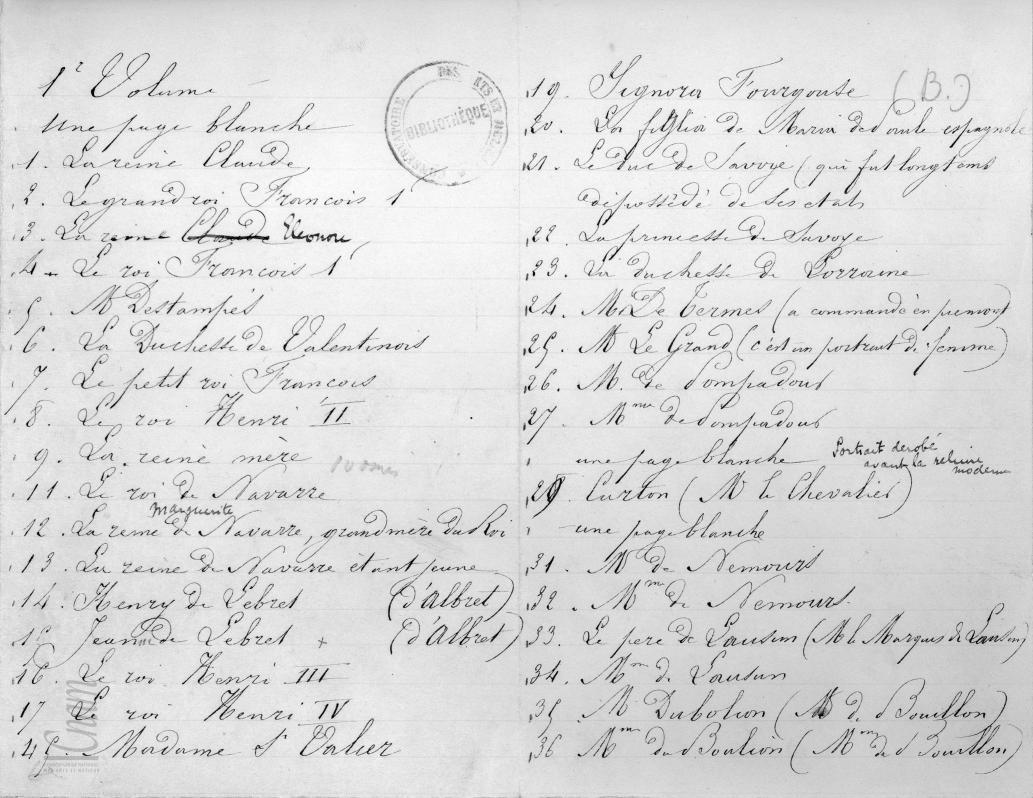 1r Volume
une page blanche
1. La reine Claude
2. Le grand roi Francois 1
3. La reine Claude Eleonore
4 - Le roi Francois 1
5. M Destampés
6. La Duchesse de Valentinois
7. Le petit roi Francois
8. Le roi Henri II
9. La reine mère
11. Le roi de Navarre
Marguerite
12. La reine de Navarre, grandmère du Roi
13. La reine de Navarre étant jeune
14. Henry de Lebret (d'Albret)
15 Jeanne de Lebret + (d'Albret)
16. Le roi Henri III
17 Le roi Henri IV
Madame St Valier
CONSERVATOIRE DES ARTS ET MÉTIERS
BIBLIOTHÈQUE
le cnam
(B.)
19. Signora Fourgouse
20. La figlia de Maria de Paule espagnole
21. Le duc de Savoye (qui fut longtems
dépossédé de ses etats
22. La princesse de Savoye
23. La duchesse de Lorraine
24. M. De Termes (a commandé en piemont)
25. M Le Grand (c'est un portrait de femme)
26. M. de Pompadour
27 Mme de Pompadour
une page blanche Portrait derobé
avant la reliure
moderne
29. Curton (Mr le Chevalier)
une page blanche
31. Mr de Nemours
32. Mme de Nemours.
33. Le pere de Lausun (Mr le Marquis de Lausun)
34. Mme de Lausun
35 M Dubolion (M de Bouillon)
36 Mme du Boulion (Mme de Bouillon)